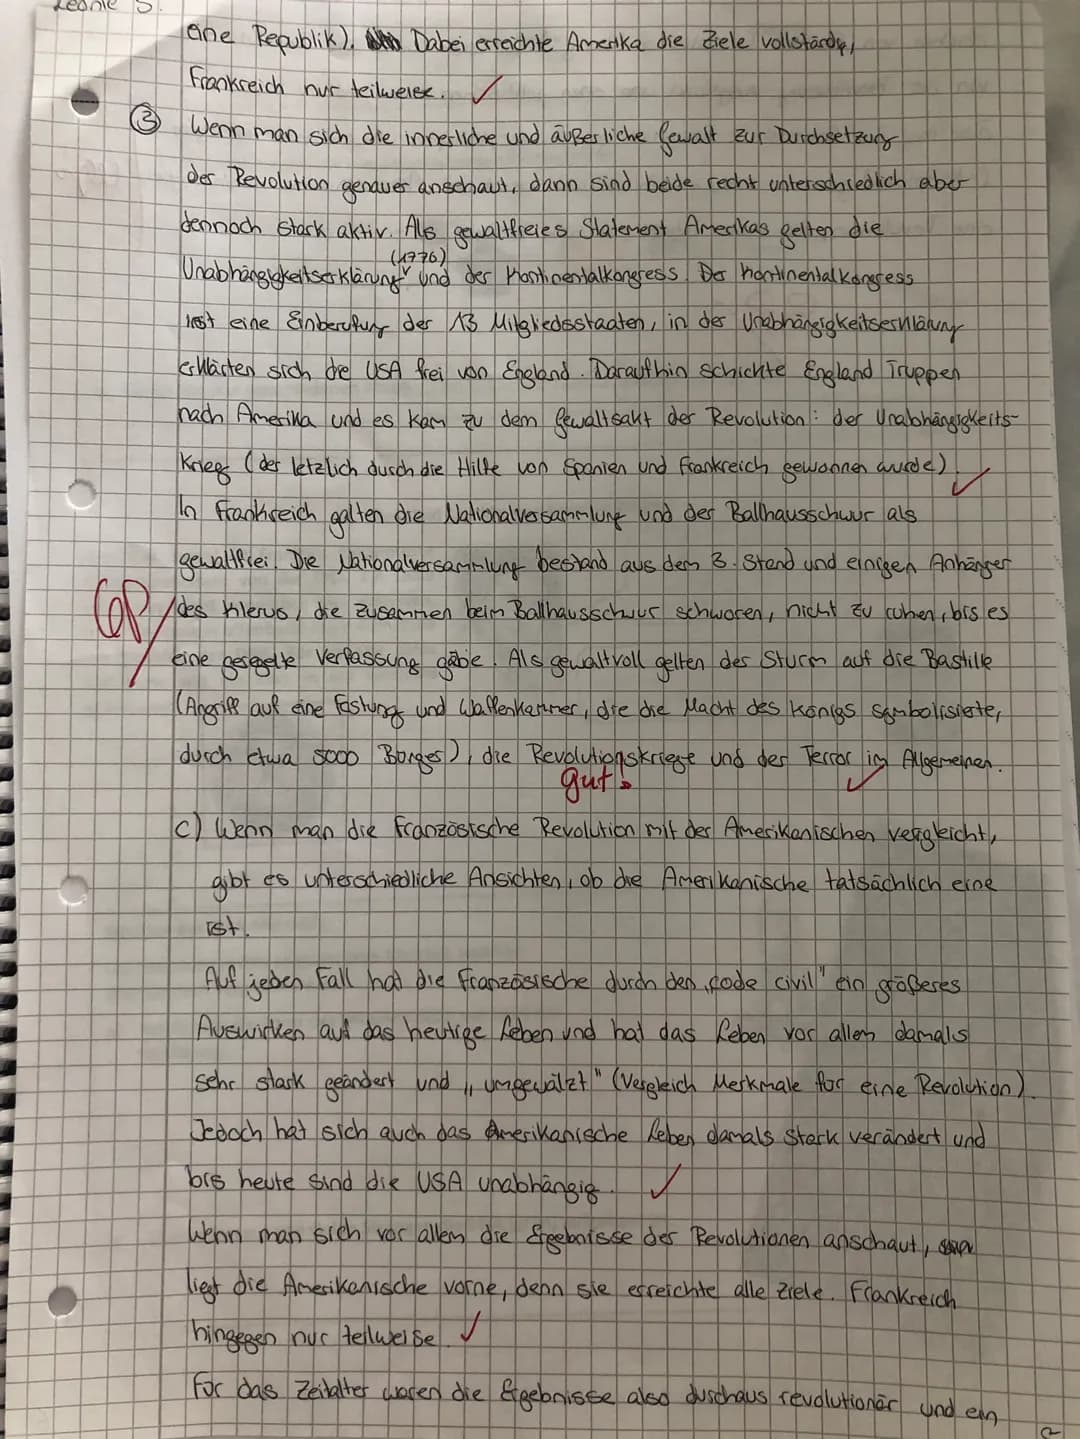 Leonie S.
eine Republik). Dabei erreichte Amerika die Ziele vollständig,
Frankreich nur teilweise. ✓
③ Wenn man sich die innerliche und äußerliche Gewalt zur Durchsetzung
der Revolution genauer anschaut, dann sind beide recht unterschiedlich aber
dennoch stark aktiv. Als gewaltfreies Statement Amerikas gelten die
(1776)
Unabhängigkeitserklärung und der Kontinentalkongress. Der Kontinentalkongress
ist eine Einberufung der 13 Mitgliedsstaaten, in der Unabhängigkeitserklärung
erklärten sich die USA frei von England. Daraufhin schickte England Truppen
nach Amerika und es kam zu dem Gewaltsakt der Revolution: der Unabhängigkeits-
krieg (der letzlich durch die Hilfe von Spanien und Frankreich gewonnen wurde). ✓
In Frankreich galten die Nationalversammlung und der Ballhausschwur als
gewaltfrei. Die Nationalversammlung bestand aus dem 3. Stand und einigen Anhänger
6P/ des Klerus, die zusammen beim Ballhausschwur schworen, nicht zu ruhen, bis es
eine geregelte Verfassung gäbe. Als gewaltvoll gelten der Sturm auf die Bastille
(Angriff auf eine Festung und Waffenkammer, die die Macht des Königs symbolisierte,
durch etwa 5000 Bürger), die Revolutionskriege und der Terror im Allgemeinen. ✓
gut.
c) Wenn man die Französische Revolution mit der Amerikanischen vergleicht,
gibt es unterschiedliche Ansichten, ob die Amerikanische tatsächlich eine
ist.
Auf jeden Fall hat die Französische durch den „code civil" ein größeres
Auswirken auf das heutige Leben und hat das Leben vor allem damals
sehr stark geändert und „umgewälzt" (Vergleich Merkmale für eine Revolution).
Jedoch hat sich auch das Amerikanische Leben damals stark verändert und
bis heute sind die USA unabhängig. ✓
Wenn man sich vor allem die Ergebnisse der Revolutionen anschaut,
liegt die Amerikanische vorne, denn sie erreichte alle Ziele. Frankreich
hingegen nur teilweise. ✓
Für das Zeitalter waren die Ergebnisse also durchaus revolutionär und ein